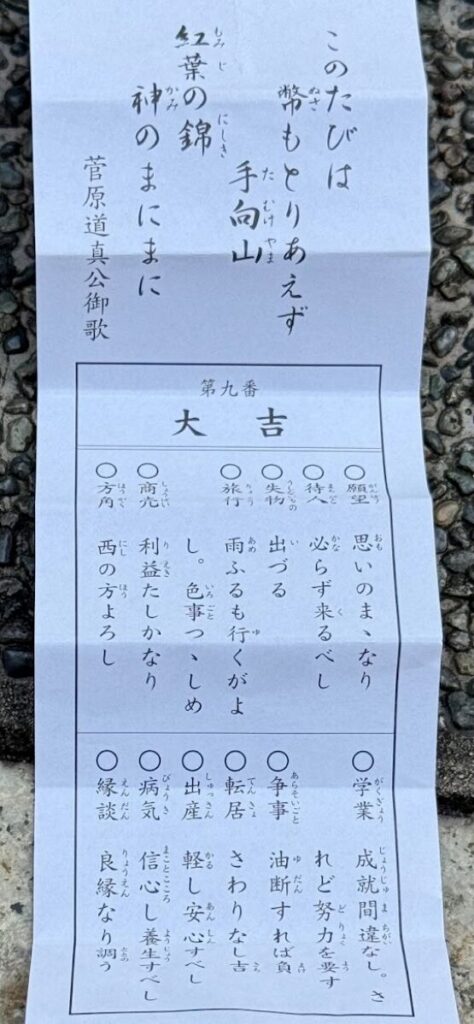 このたびは
幣もとりあえず
手向山
紅葉の錦
神のまにまに
菅原道真公御歌
第九番
大吉
○願望 思いのまゝなり
○待人 必らず来るべし
○失物 出づる
○旅行 雨ふるも行くがよ
し。色事つゝしめ
○商売 利益たしかなり
○方角 西の方よろし
○学業 成就間違なし。さ
れど努力を要す
○争事 油断すれば負
○転居 さわりなし吉
○出産 軽し安心すべし
○病気 信心し養生すべし
○縁談 良縁なり調う